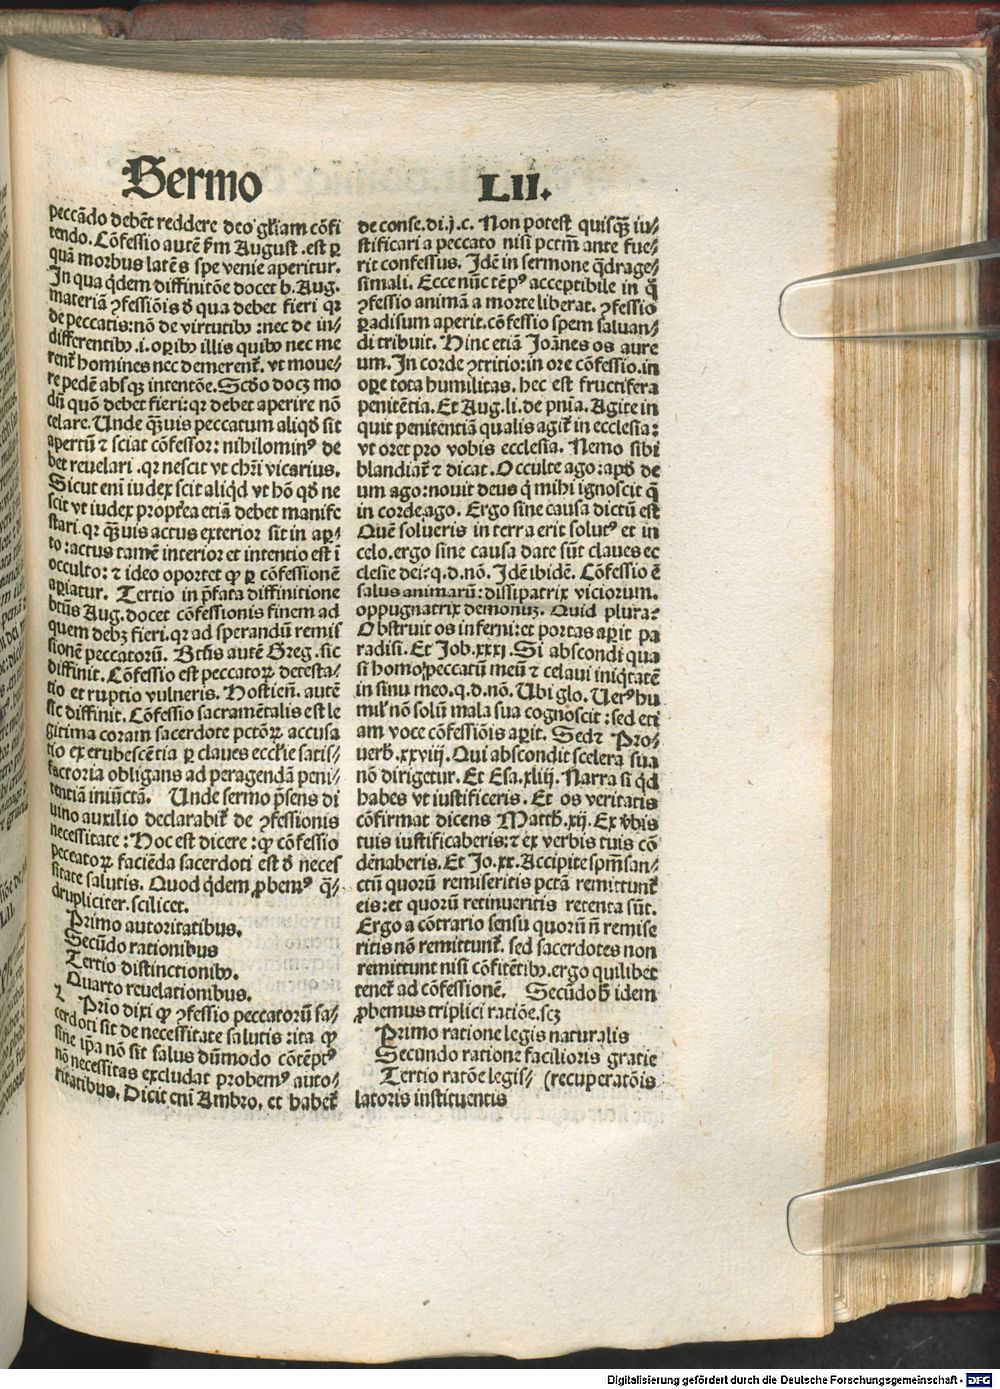 Sermo LII.
peccãdo debẽt reddere deo gľiam cõfi
tendo. Cõfessio autẽ ẜm August. est ꝑ
quã morbus latẽs spe venie aperitur.
In qua qͥdem diffinitõe docet b. Aug.
materiã ꝯfessiõis ð qua debet fieri qꝛ
de peccatis: nõ de virtutibꝰ: nec de in/
differentibꝰ .i. oꝑibꝰ illis quibꝰ nec me
renť homines nec demerenť. vt moue/
re pedẽ absqꝫ intentõe. Scðo docꝫ mo
dũ quõ debet fieri: qꝛ debet aperire nõ
celare. Unde qͣꝫuis peccatum aliqð sit
apertũ ⁊ sciat cõfessor: nihilominꝰ de
bet reuelari. qꝛ nescit vt chꝛi vicarius.
Sicut eni iudex scit aliqͥd vt hõ qð ne
scit vt iudex propťea etiã debet manife
stari. qꝛ qͣꝫuis actus exterior sit in aꝑ/
to: actus tamẽ interior et intentio est ĩ
occulto: ⁊ ideo oportet ꝙ ꝑ cõfessionẽ
aꝑiatur. Tertio in p̃fata diffinitione
btũs Aug. docet cõfessionis finem ad
quem debꝫ fieri. qꝛ ad sperandũ remis
sionẽ peccatorũ. Btũs autẽ Greg. sic
diffinit. Cõfessio est peccatoꝝ detesta/
tio et ruptio vulneris. Hostieñ. autẽ
sic diffinit. Cõfessio sacramẽtalis est le
gitima coram sacerdote pctõꝝ accusa
tio ex erubescẽtia ꝑ claues eccľie satis/
factoria obligans ad peragendã peni/
tentiã iniũctã. Unde sermo p̃sens di
uino auxilio declarabiť de ꝯfessionis
necessitate: Hoc est dicere: ꝙ cõfessio
peccatoꝝ faciẽda sacerdoti est ð neces
sitate salutis. Quod qͥdem ꝓbemꝰ qͣ/
drupliciter. scilicet.
Primo autoritatibus.
Secũdo rationibus
Tertio distinctionibꝰ.
Quarto reuelationibus.
⁊ Prĩo dixi ꝙ ꝯfessio peccatorũ sa/
cerdoti sit de necessitate salutis: ita ꝙ
sine ip̃a nõ sit salus dũmodo cõtẽptꝰ
nõ necessitas excludat probemꝰ auto/
ritatibus. Dicit eni Ambro. et habeť
de conse. di. j. c. Non potest quisqͣꝫ iu/
stificari a peccato nisi pctm̃ ante fue/
rit confessus. Idẽ in sermone qͣdrage/
simali. Ecce nũc tẽpꝰ acceptibile in qͦ
ꝯfessio animã a morte liberat. ꝯfessio
ꝑadisum aperit. cõfessio spem saluan/
di tribuit. Hinc etiã Joãnes os aure
um. In corde ꝯtritio: in ore cõfessio. in
oꝑe tota humilitas. hec est fructifera
penitẽtia. Et Aug. li. de pñia. Agite in
quit penitentiã qualis agiť in ecclesia:
vt oret pro vobis ecclesia. Nemo sibi
blandiať ⁊ dicat. Occulte ago: apð de
um ago: nouit deus qͥ mihi ignoscit qͣ
in corde ago. Ergo sine causa dictũ est
Quẽ solueris in terra erit solutꝰ et in
celo. ergo sine causa date sũt claues ec
clesie dei? q. d. nõ. Idẽ ibidẽ. Cõfessio ẽ
salus animarũ: dissipatrix viciorum.
oppugnatrix demoniꝫ. Quid plura?
Obstruit os inferni: et portas aꝑit pa
radisi. Et Job. xxxj. Si abscondi qua
si homo peccatũ meũ ⁊ celaui iniqͥtatẽ
in sinu meo. q. d. nõ. Ubi glo. Uerꝰ hu
miľ nõ solũ mala sua cognoscit: sed eti
am voce cõfessiõis aꝑit. Sed⁊ Pro/
uerb̃. xxviij. Qui abscondit scelera sua
nõ dirigetur. Et Esa. xliij. Narra si qͥd
habes vt iustificeris. Et os veritatis
cõfirmat dicens Matth̃. xij. Ex v̾bis
tuis iustificaberis: ⁊ ex verbis tuis cõ
dẽnaberis. Et Jo. xx. Accipite spm̃ san/
ctũ quorũ remiseritis pctã remittunť
eis: et quorũ retinueritis retenta sũt.
Ergo a cõtrario sensu quorũ ñ remise
ritis nõ remittunť. sed sacerdotes non
remittunt nisi cõfitẽtibꝰ. ergo quilibet
teneť ad cõfessionẽ. Secũdo b̃ idem
ꝓbemus triplici ratiõe. scꝫ
Primo ratione legis naturalis
Secundo ratione facilioris gratie
Tertio ratõe legis/ (recuperatõis
latoris instituentis
Digitalisierung gefördert durch die Deutsche Forschungsgemeinschaft - DFG